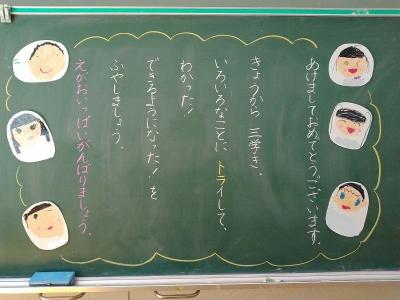 あけましておめでとうございます。
きょうから 三学き、
いろいろなことに トライして、
わかった！
できるようになった！を
ふやしましょう。
えがおいっぱいがんばりましょう。